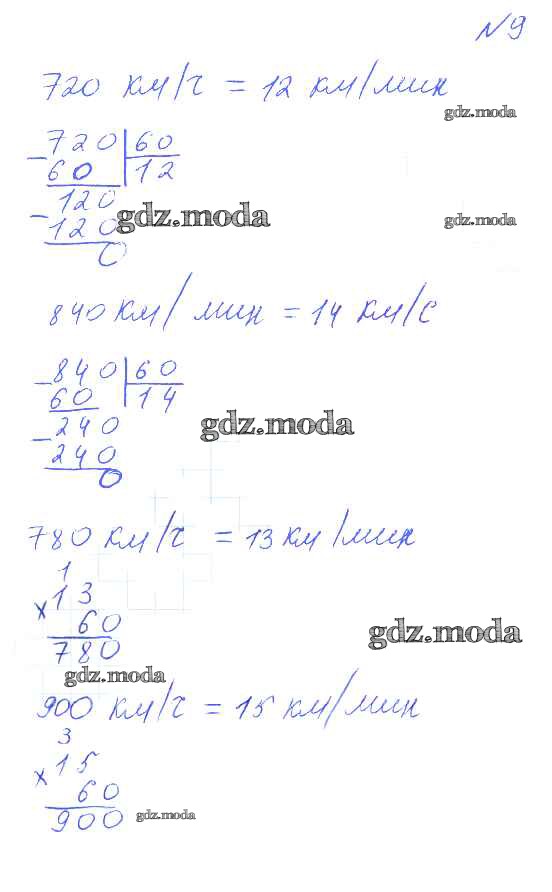 №9
720 км/ч = 12 км/мин
gdz.moda
720 60
60 12
120
120
gdz.moda
gdz.moda
0
840 км/мин = 14 км/с
840 60
60 14
240
gdz.moda
240
0
780 км/ч = 13 км/мин
1
× 13
60
780
gdz.moda
gdz.moda
900 км/ч = 15 км/мин
3
× 15
60
900
gdz.moda